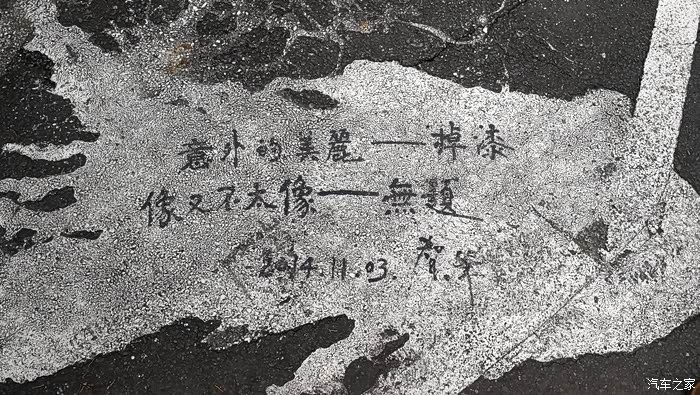 意外的美麗——掉漆
像又不太像——無題
2014.11.03.
汽车之家